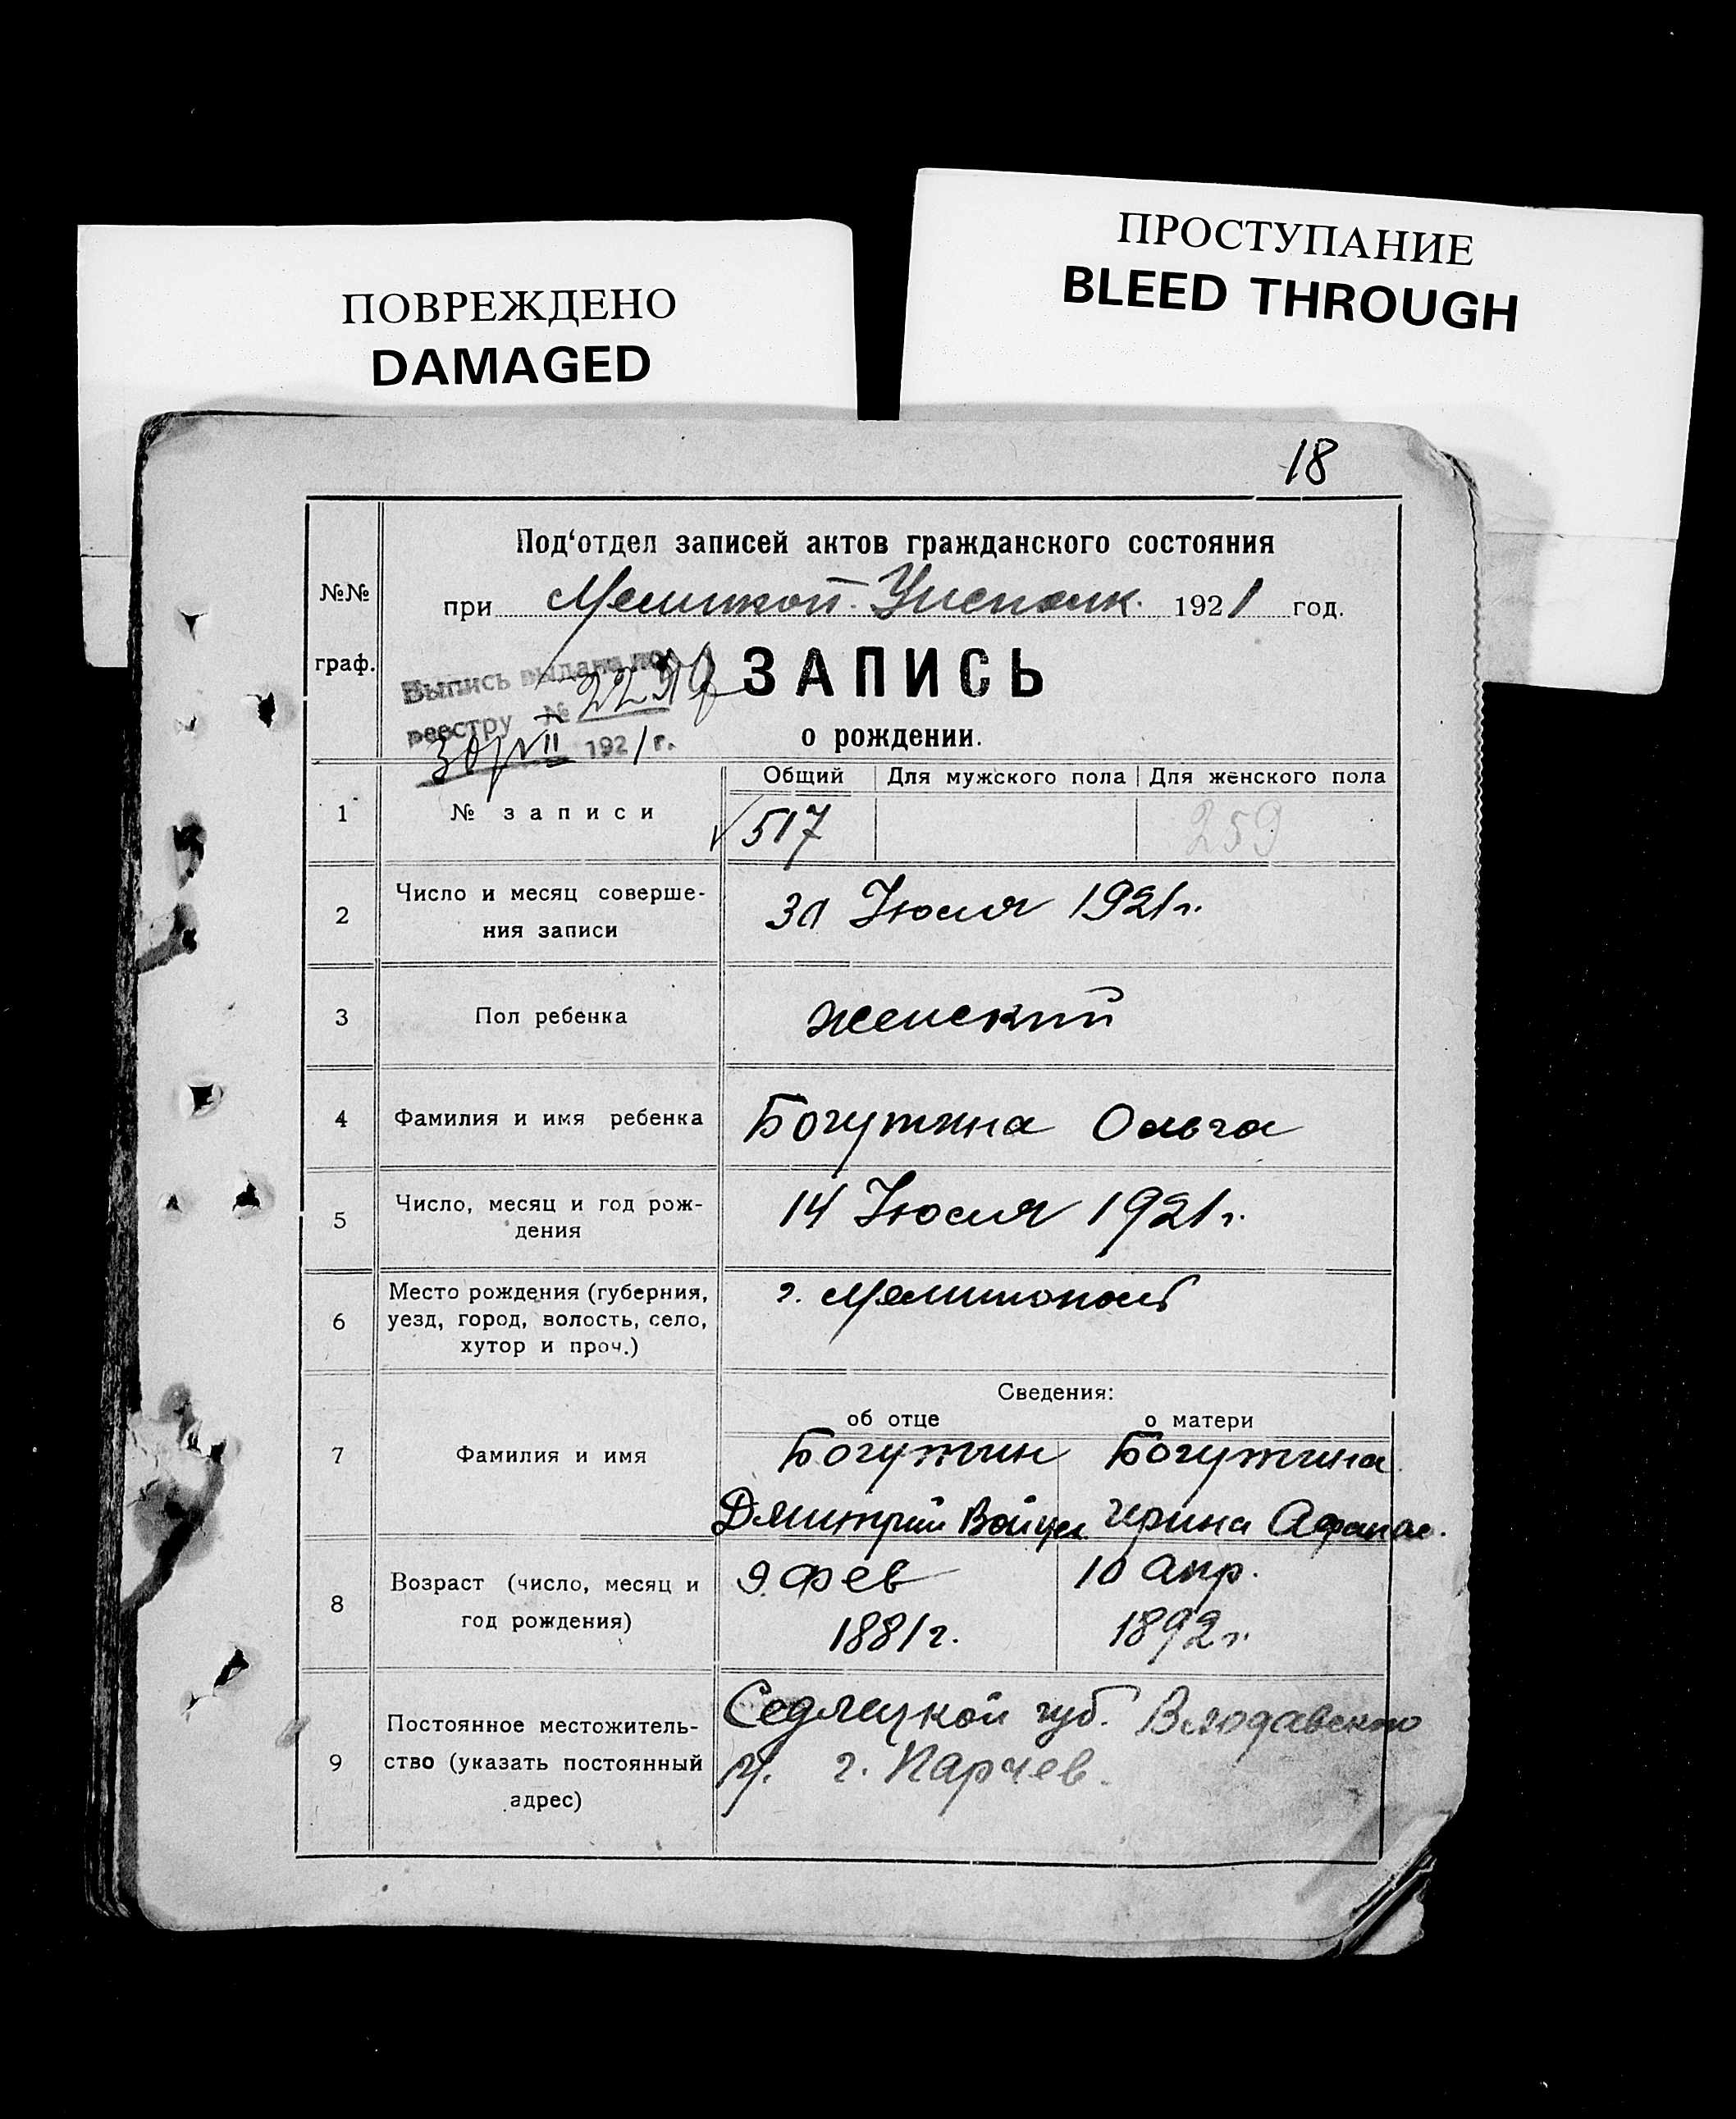 ПОВРЕЖДЕНО
DAMAGED
ПРОСТУПАНИЕ
BLEED THROUGH
18
№№ граф.
Под‘отдел записей актов гражданского состояния
при Мелитоп. Уисполк. 1921 год.
Выпись выдана по
реестру №
30/VII 1921 г.
ЗАПИСЬ
о рождении.
Общий Для мужского пола Для женского пола
1 № записи 517 259
2 Число и месяц соверше-
ния записи
30 Июля 1921 г.
3 Пол ребенка женский
4 Фамилия и имя ребенка Богутина Ольга
5 Число, месяц и год рож-
дения
14 Июля 1921 г.
6 Место рождения (губерния,
уезд, город, волость, село,
хутор и проч.)
г. Мелитополь
Сведения:
об отце о матери
7 Фамилия и имя
Богутин Богутина
Дмитрий Ирина Афанас.
8 Возраст (число, месяц и
год рождения)
9 фев 10 апр.
1881 г. 1892 г.
9 Постоянное местожитель-
ство (указать постоянный
адрес)
Седлецкой губ. Влодавского
у. г. Парчев.